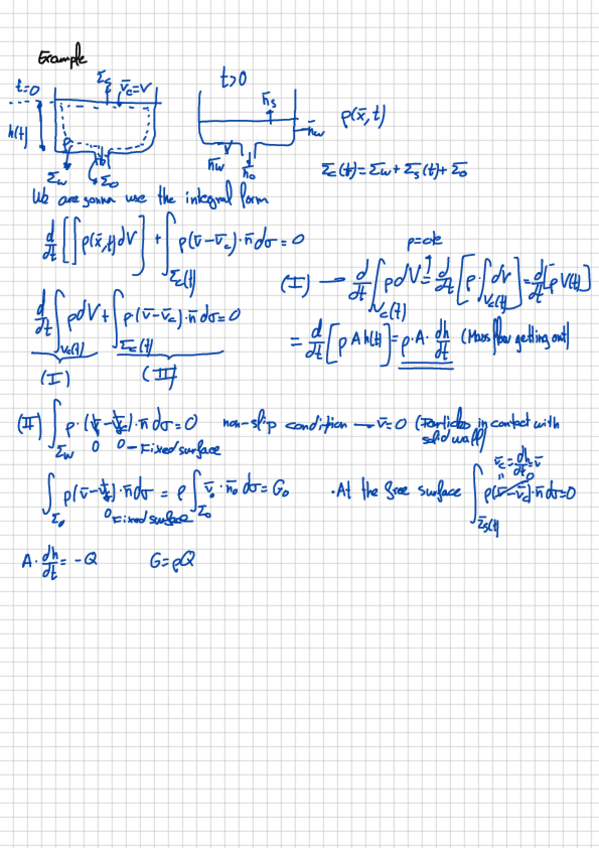 Example
t=0 Σs v̄c=v t>0
h(t) n̄s n̄w ρ(x̄,t)
Σw Σo n̄w n̄o Σc(t)=Σw+Σs(t)+Σo
We are gonna use the integral form
d/dt [∫ρ(x̄,t)dV] + ∫Σc(t) ρ(v̄-v̄c)·n̄dσ=0
ρ=cte
(I) → d/dt ∫Vc(t) ρdV = d/dt [ρ·∫Vc(t) dV] = d/dt[ρ V(t)]
d/dt ∫Vc(t) ρdV + ∫Σc(t) ρ(v̄-v̄c)·n̄dσ=0
(I) (II)
= d/dt [ρ A h(t)] = ρ·A·dh/dt (Mass flow getting out)
(II) ∫Σw ρ·(v̄-v̄c)·n̄dσ=0 non-slip condition → v̄=0 (Particles in contact with solid wall)
0 0 - Fixed surface
∫Σo ρ(v̄-v̄c)·n̄dσ = ρ∫Σo v̄o·n̄o dσ = Go
0 Fixed surface
·At the free surface ∫Σs(t) ρ(v̄-v̄c)·n̄dσ=0
v̄c=dh/dt=v̄
0
A·dh/dt=-Q G=ρQ